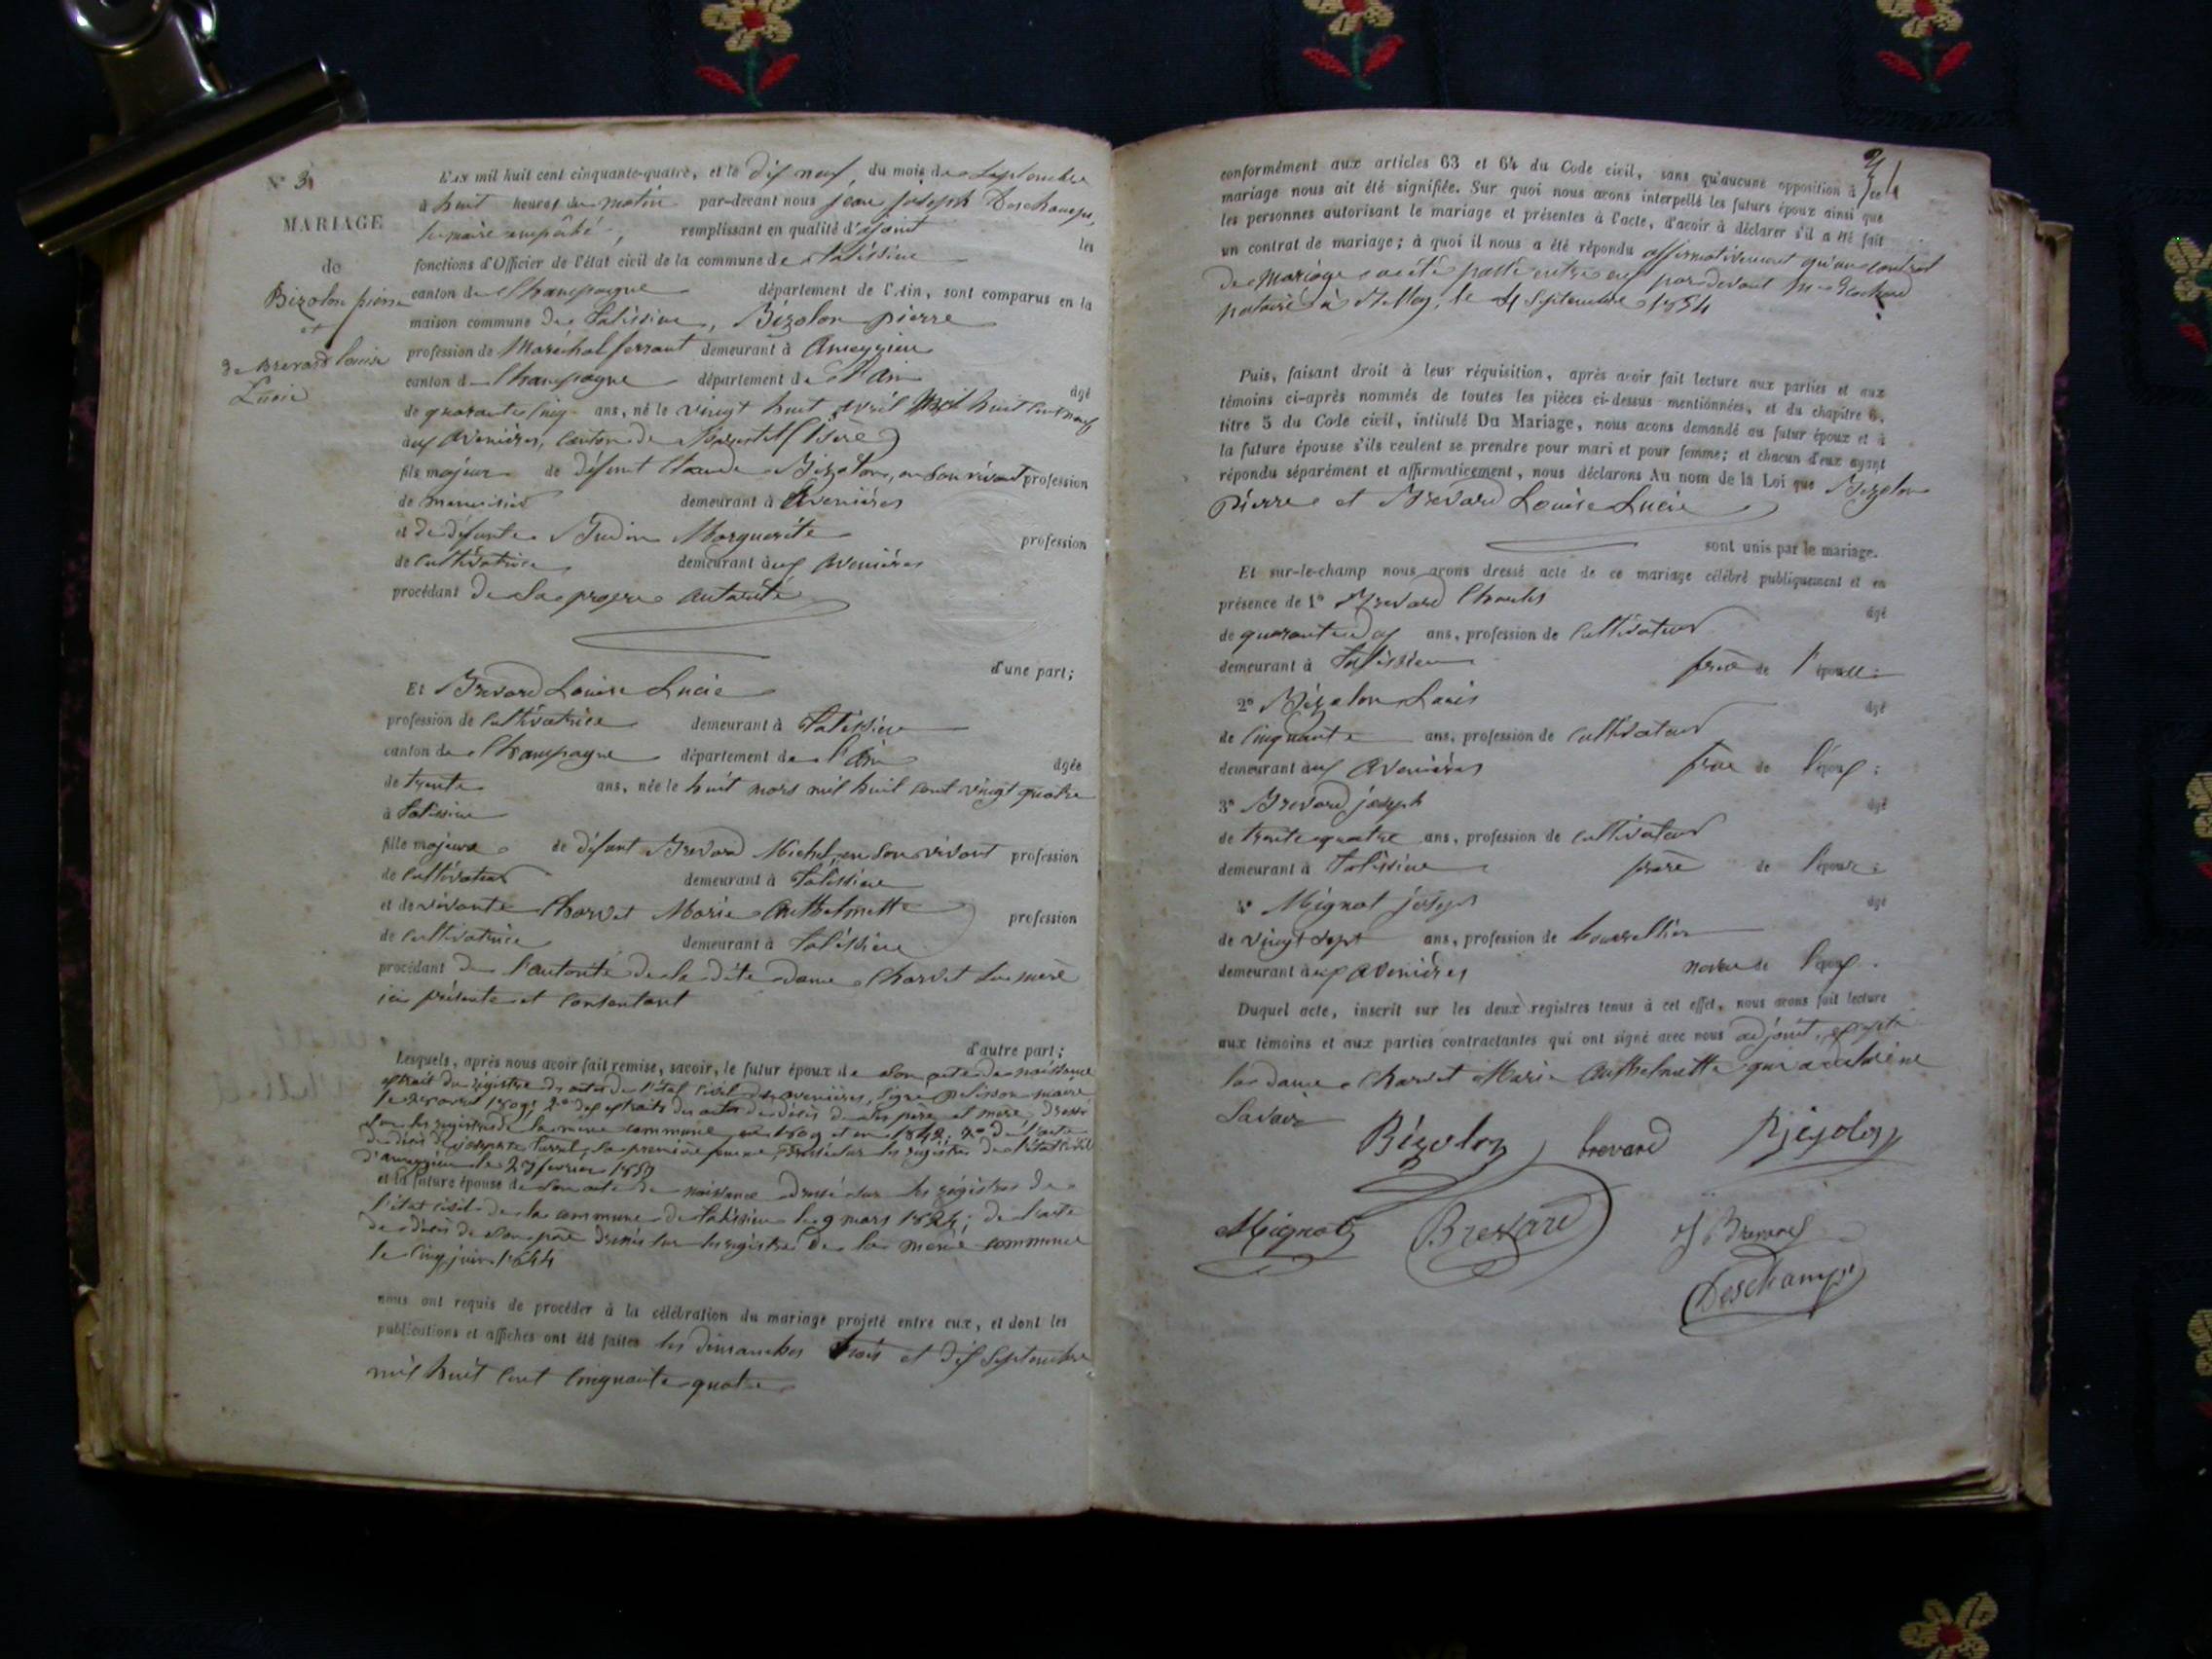 N° 3
MARIAGE
de
Bizolon pierre
et
de Brevard louise
Lucie
L'an mil huit cent cinquante-quatre, et le dix neuf du mois de Septembre
à huit heures du matin par-devant nous jean joseph Deschamps,
le maire empêché, remplissant en qualité d'adjoint les
fonctions d'Officier de l'état civil de la commune de talissieu
canton de Champagne département de l'Ain, sont comparus en la
maison commune de talissieu, Bizolon pierre
profession de Maréchal ferrant demeurant à Ameyzieu
canton de Champagne département de l'Ain âgé
de quarante cinq ans, né le vingt huit avril mil huit cent neuf
aux avenières, canton de (Isère)
fils majeur de défunt Claude Bizolon, en son vivant profession
de menuisier demeurant à Avenières
et de défunte Marguerite profession
de cultivatrice demeurant aux avenières
procédant de sa propre autorité
d'une part;
Et Brevard Louise Lucie
profession de cultivatrice demeurant à talissieu
canton de Champagne département de l'Ain âgée
de trente ans, née le huit mars mil huit cent vingt quatre
à talissieu
fille majeure de défunt Brevard Michel, en son vivant profession
de cultivateur demeurant à talissieu
et de vivante Charvet Marie Anthelmette profession
de cultivatrice demeurant à talissieu
procédant de l'autorité de la dite dame Charvet sa mère
ici présente et consentant
d'autre part;
Lesquels, après nous avoir fait remise, savoir, le futur époux de son acte de naissance
extrait du registre des actes de l'état civil des avenières, signé maire
le avril 1809; 2° des extraits des actes de décès de ses père et mère, dressés
sur les registres de la même commune en 1809 et en 1842; de l'acte
de décès de sa première femme, dressé sur les registres de l'état civil
d'ameyzieu le 27 fevrier
et la future épouse de son acte de naissance dressé sur les registres de
l'état civil de la commune de talissieu le 9 mars 1824; de l'acte
de décès de son père dressé sur les registres de la même commune
le cinq juin 1844
nous ont requis de procéder à la célébration du mariage projeté entre eux, et dont les
publications et affiches ont été faites les dimanches trois et dix septembre
mil huit cent cinquante quatre
conformément aux articles 63 et 64 du Code civil, sans qu'aucune opposition à ce
mariage nous ait été signifiée. Sur quoi nous avons interpellé les futurs époux ainsi que
les personnes autorisant le mariage et présentes à l'acte, d'avoir à déclarer s'il a été fait
un contrat de mariage; à quoi il nous a été répondu affirmativement qu'un contrat
de Mariage a été passé entre eux par devant
notaire à le 4 septembre 1854
Puis, faisant droit à leur réquisition, après avoir fait lecture aux parties et aux
témoins ci-après nommés de toutes les pièces ci-dessus mentionnées, et du chapitre 6,
titre 5 du Code civil, intitulé Du Mariage, nous avons demandé au futur époux et à
la future épouse s'ils veulent se prendre pour mari et pour femme; et chacun d'eux ayant
répondu séparément et affirmativement, nous déclarons Au nom de la Loi que Bizolon
pierre et Brevard Louise Lucie
sont unis par le mariage.
Et sur-le-champ nous avons dressé acte de ce mariage célébré publiquement et en
présence de 1° Brevard Charles âgé
de quarante deux ans, profession de cultivateur
demeurant à talissieu frère de l'épouse;
2° Bizolon Louis âgé
de cinquante ans, profession de cultivateur
demeurant aux avenières frère de l'époux;
3° Brevard joseph âgé
de trente quatre ans, profession de cultivateur
demeurant à talissieu frère de l'épouse;
4° Mignot joseph âgé
de vingt sept ans, profession de bourrellier
demeurant aux avenières neveu de l'époux.
Duquel acte, inscrit sur les deux registres tenus à cet effet, nous avons fait lecture
aux témoins et aux parties contractantes qui ont signé avec nous adjoint, excepté
la dame Charvet Marie Anthelmette qui a declaré ne
savoir
Bizolon brevard Bizolon
Mignot Brevard J Brevard
Deschamps